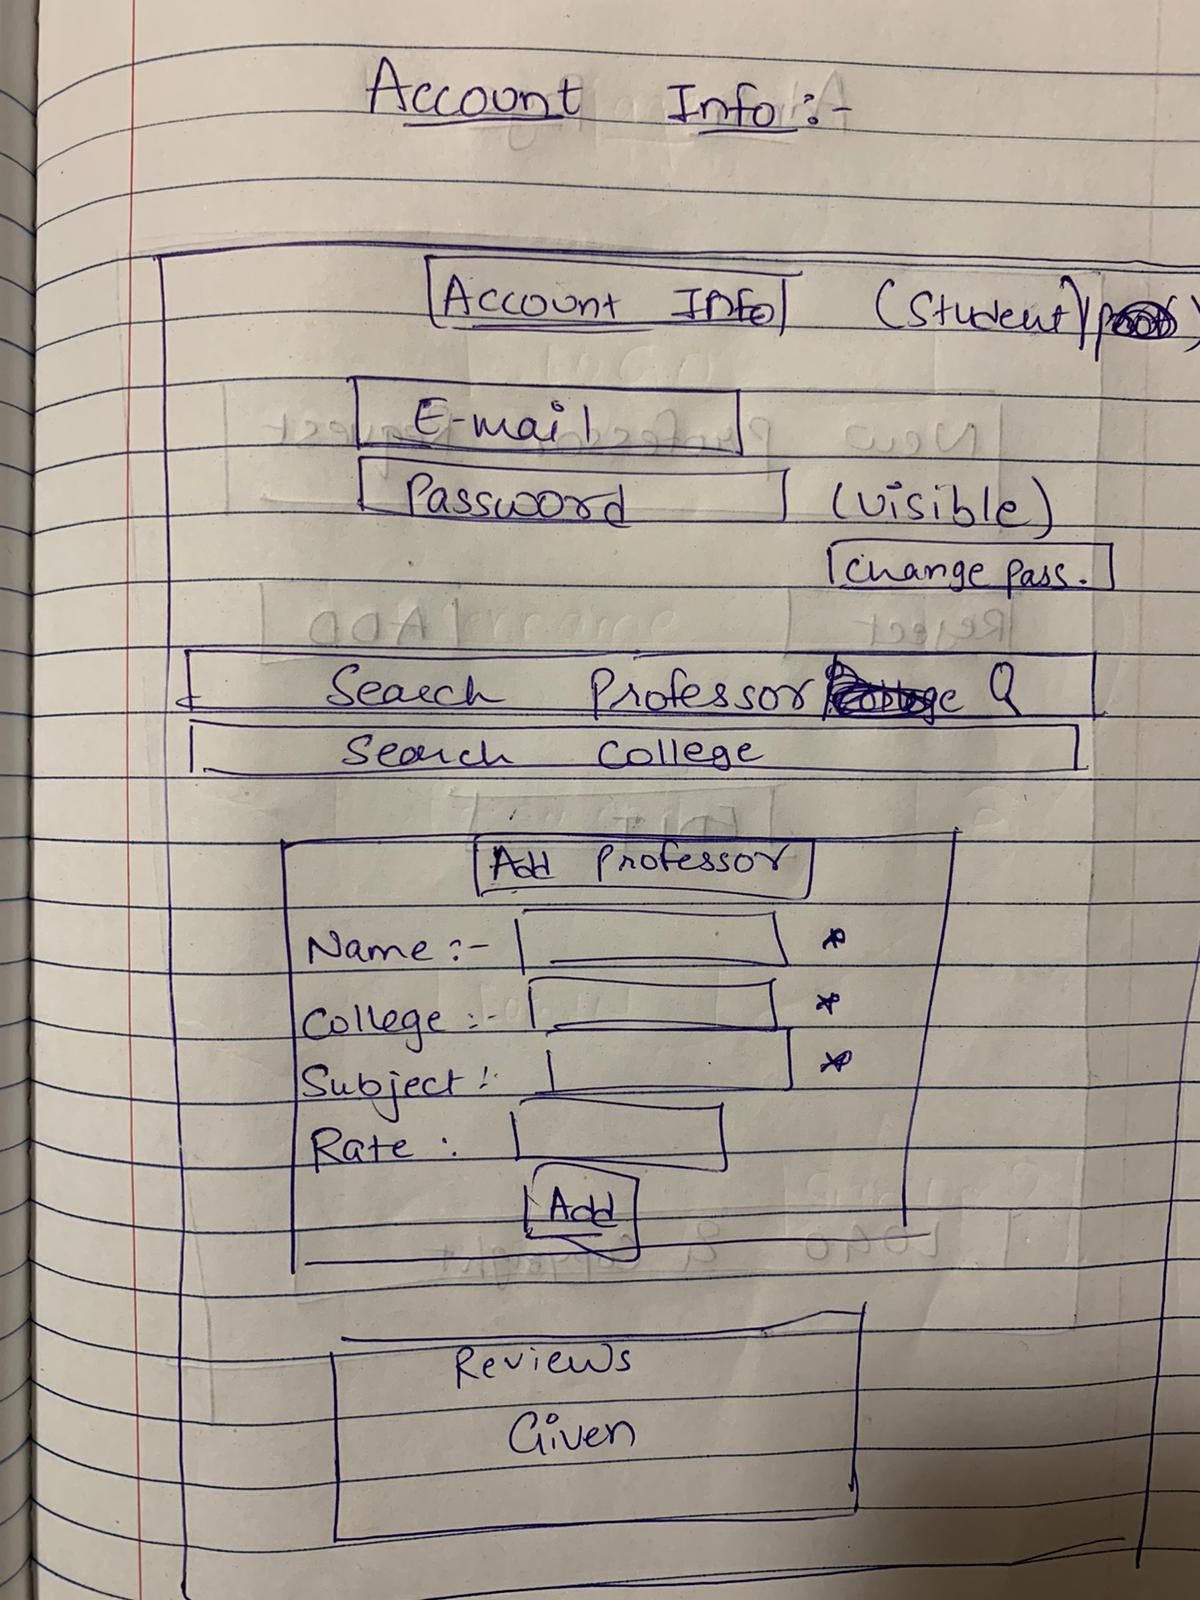 Account Info :-
Account Info (Student/
E-mail
Password (visible)
Change pass.
Search Professor
Search College
Add Professor
Name :- *
College :- *
Subject : *
Rate :
Add
Reviews
Given